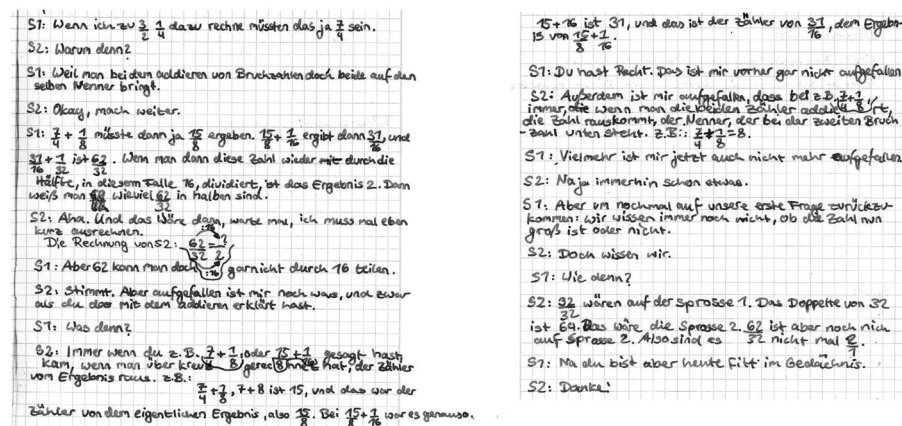 S1: Wenn ich zu 3/2 1/4 dazu rechne müssten das ja 7/4 sein.
S2: Warum denn?
S1: Weil man bei dem addieren von Bruchzahlen doch beide auf den
selben Nenner bringt.
S2: Okay, mach weiter.
S1: 7/4 + 1/8 müsste dann ja 15/8 ergeben. 15/8 + 1/16 ergibt dann 31/16, und
31/16 + 1/32 ist 62/32. Wenn man dann diese Zahl wieder mit durch die
Hälfte, in diesem Falle 16, dividiert, ist das Ergebnis 2. Dann
weiß man wieviel 62/32 in halben sind.
S2: Aha. Und das wäre dann, warte mal, ich muss mal eben
kurz ausrechnen.
:16
Die Rechnung von S2: 62/32 = ?/2
:16
S1: Aber 62 kann man doch garnicht durch 16 teilen.
S2: Stimmt. Aber aufgefallen ist mir noch was, und zwar
als du das mit dem addieren erklärt hast.
S1: Was denn?
S2: Immer wenn du z.B. 7/4 + 1/8, oder 15/8 + 1/16 gesagt hast,
kam, wenn man über kreuz gerechnet hat, der Zähler
vom Ergebnis raus. z.B.:
7/4 + 1/8, 7+8 ist 15, und das war der
Zähler von dem eigentlichen Ergebnis, also 15/8. Bei 15/8 + 1/16 war es genauso.
15+16 ist 31, und das ist der Zähler von 31/16, dem Ergebn-
is von 15/8 + 1/16.
S1: Du hast Recht. Das ist mir vorher gar nicht aufgefallen
S2: Außerdem ist mir aufgefallen, dass bei z.B. 7/4 + 1/8,
immer, die wenn man die beiden Zähler addiert,
die Zahl rauskommt, der Nenner, der bei der zweiten Bruch
-zahl unten steht. z.B.: 7/4 + 1/8 = 8.
S1: Vielmehr ist mir jetzt auch nicht mehr aufgefallen
S2: Na ja immerhin schon etwas.
S1: Aber um nochmal auf unsere erste Frage zurückzu-
kommen: wir wissen immer noch nicht, ob die Zahl nun
groß ist oder nicht.
S2: Doch wissen wir.
S1: Wie denn?
S2: 32/32 wären auf der Sprosse 1. Das Doppelte von 32
ist 64. Das wäre die Sprosse 2. 62/32 ist aber noch nich
auf Sprosse 2. Also sind es nicht mal 2/1
S1: Na du bist aber heute fitt im Gedächnis.
S2: Danke!